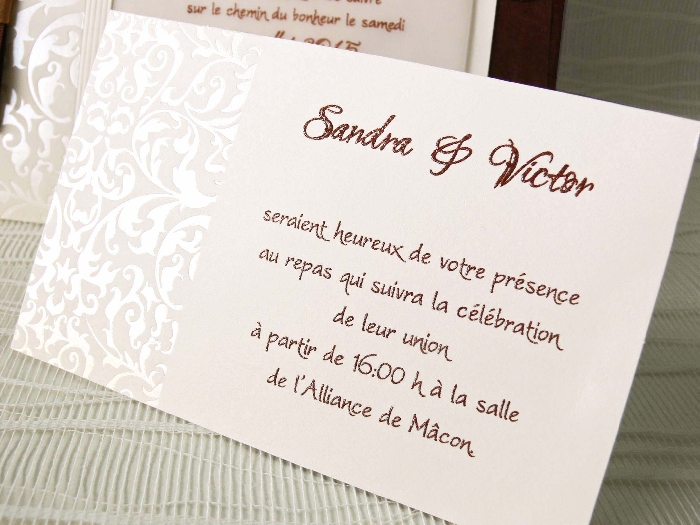 sur le chemin du bonheur le samedi
Sandra & Victor
seraient heureux de votre présence
au repas qui suivra la célébration
de leur union
à partir de 16:00 h à la salle
de l'Alliance de Mâcon